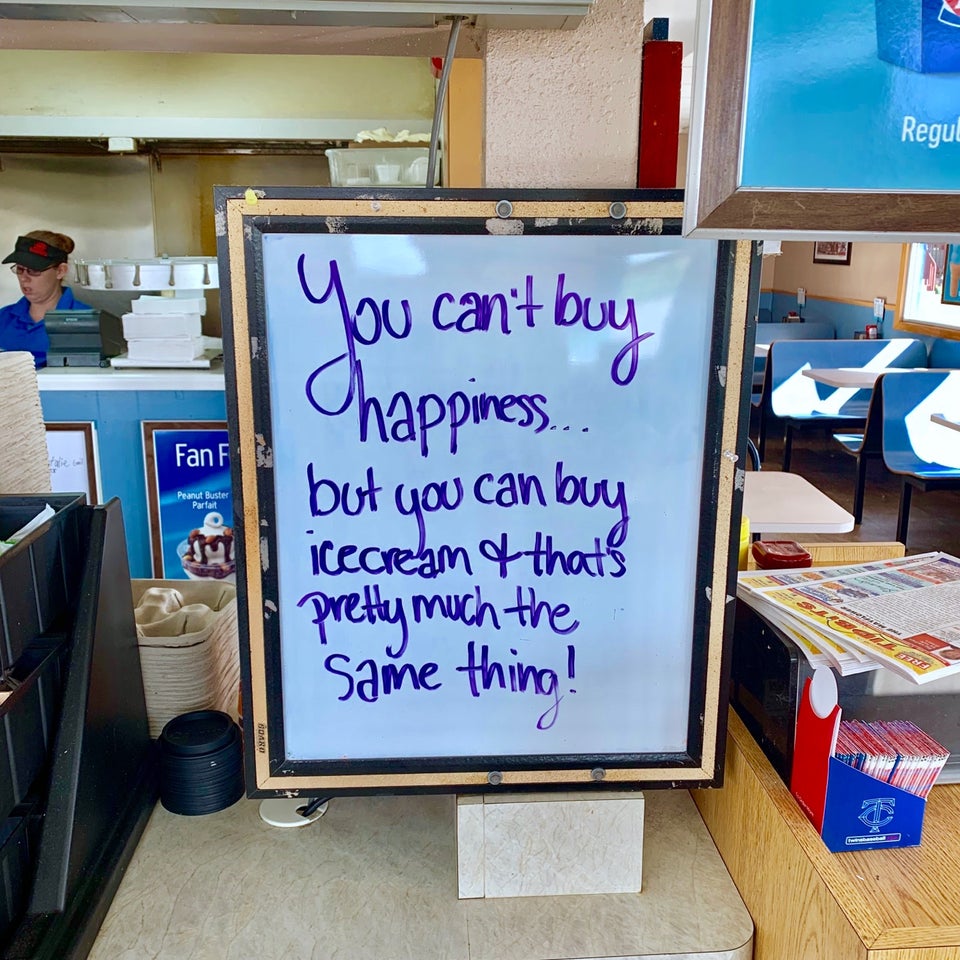 You can't buy
happiness...
but you can buy
icecream & that's
pretty much the
same thing!
Regul
Fan F
Peanut Buster
Parfait
BOARD
FREE
TC
twinsbaseball